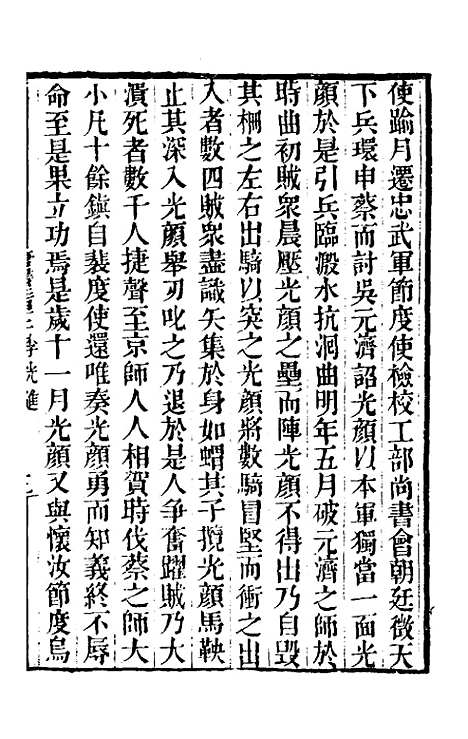 使踰月遷忠武軍節度使檢校工部尚書會朝廷徵天
下兵環申蔡而討吳元濟詔光顏以本軍獨當一面光
顏於是引兵臨溵水抗洄曲明年五月破元濟之師於
時曲初賊衆晨壓光顏之壘而陣光顏不得出乃自毁
其柵之左右出騎以突之光顏將數騎冒堅而衝之出
入者數四賊衆盡識矢集於身如蝟其子攬光顏馬鞅
止其深入光顏舉刃叱之乃退於是人争奮躍賊乃大
潰死者數千人捷聲至京師人人相賀時伐蔡之師大
小凡十餘鎮自裴度使還唯奏光顏勇而知義終不辱
命至是果立功焉是歲十一月光顏又與懷汝節度烏
李光進